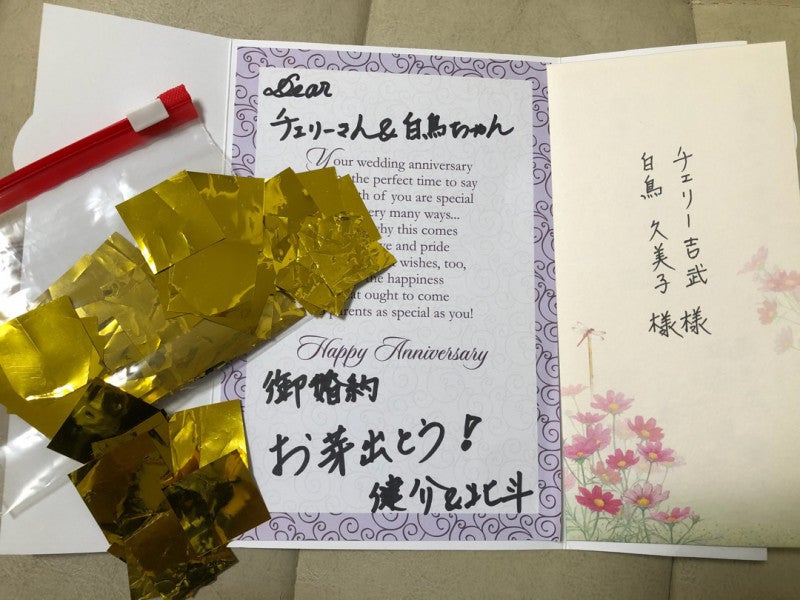 Dear
チェリーさん&白鳥ちゃん
Your wedding anniversary
the perfect time to say
th of you are special
ery many ways...
hy this comes
ve and pride
wishes, too,
the happiness
at ought to come
parents as special as you!
Happy Anniversary
御婚約
お芽出とう!
健介&北斗
チェリー吉武様
白鳥久美子様